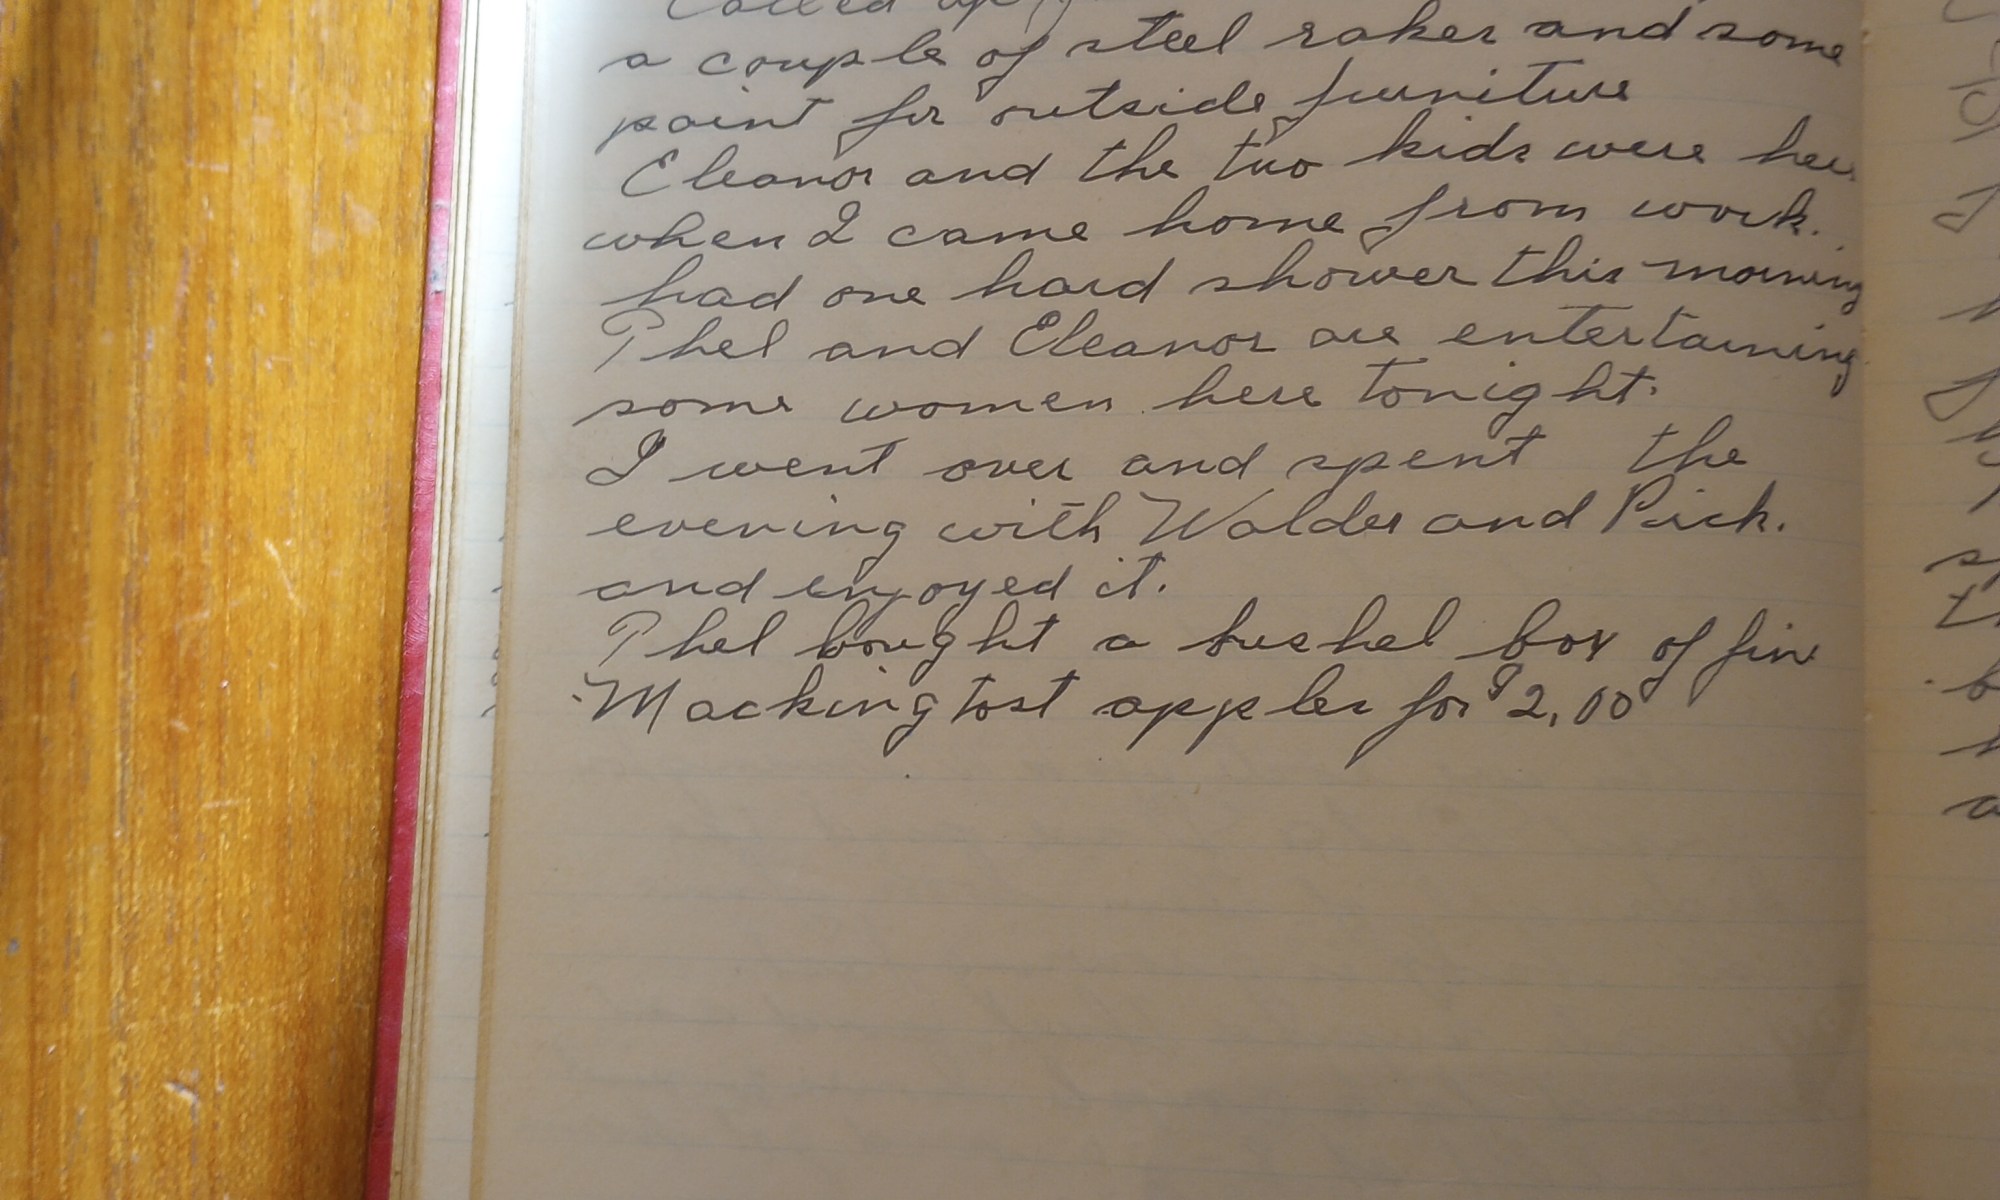 Called up
a couple of steel rakes and some
paint for outside furniture
Eleanor and the two kids were here
when I came home from work.
had one hard shower this morning
Phel and Eleanor are entertaining
some women here tonight.
I went over and spent the
evening with Walder and
and enjoyed it.
Phel bought a bushel box of fine
Mackingtost apples for $2,00